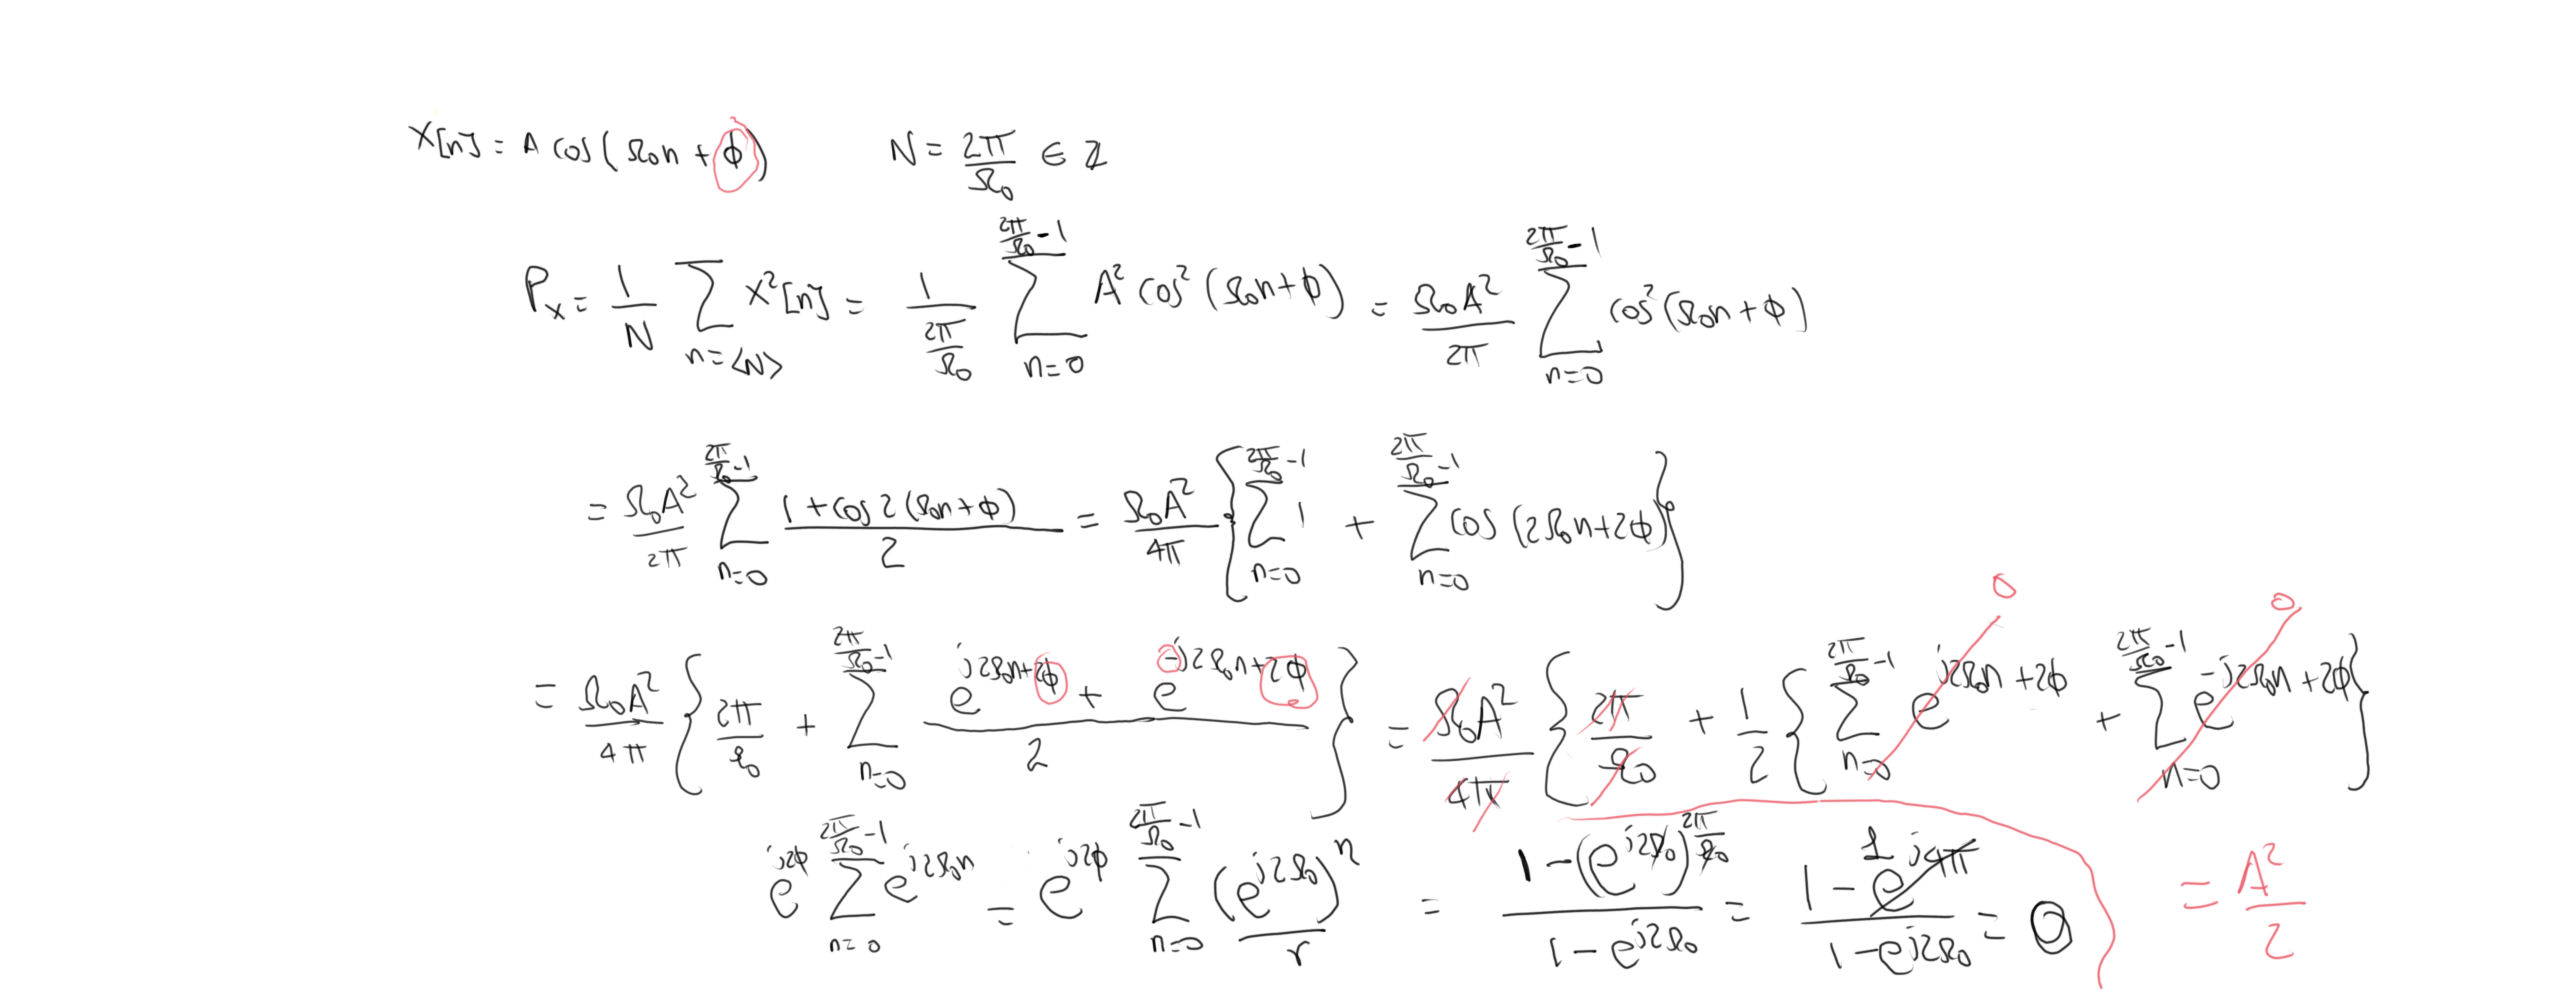 x[n] = A cos(Ω₀n + ϕ)    N = 2π/Ω₀ ∈ ℤ
Pₓ = 1/N ∑_{n=<N>} x²[n] = 1/(2π/Ω₀) ∑_{n=0}^{2π/Ω₀ -1} A² cos²(Ω₀n+ϕ) = Ω₀A²/2π ∑_{n=0}^{2π/Ω₀ -1} cos²(Ω₀n+ϕ)
= Ω₀A²/2π ∑_{n=0}^{2π/Ω₀ -1} (1+cos2(Ω₀n+ϕ))/2 = Ω₀A²/4π { ∑_{n=0}^{2π/Ω₀ -1} 1 + ∑_{n=0}^{2π/Ω₀ -1} cos(2Ω₀n+2ϕ) }
= Ω₀A²/4π { 2π/Ω₀ + ∑_{n=0}^{2π/Ω₀ -1} (e^{j2Ω₀n+2ϕ} + e^{-j2Ω₀n+2ϕ})/2 } = Ω₀A²/4π { 2π/Ω₀ + 1/2 { ∑_{n=0}^{2π/Ω₀ -1} e^{j2Ω₀n+2ϕ} 0 + ∑_{n=0}^{2π/Ω₀ -1} e^{-j2Ω₀n+2ϕ} 0 }
e^{j2ϕ} ∑_{n=0}^{2π/Ω₀ -1} e^{j2Ω₀n} = e^{j2ϕ} ∑_{n=0}^{2π/Ω₀ -1} (e^{j2Ω₀})^n r = (1-(e^{j2Ω₀})^{2π/Ω₀})/(1-e^{j2Ω₀}) = (1-e^{j4π} 1)/(1-e^{j2Ω₀}) = 0    = A²/2